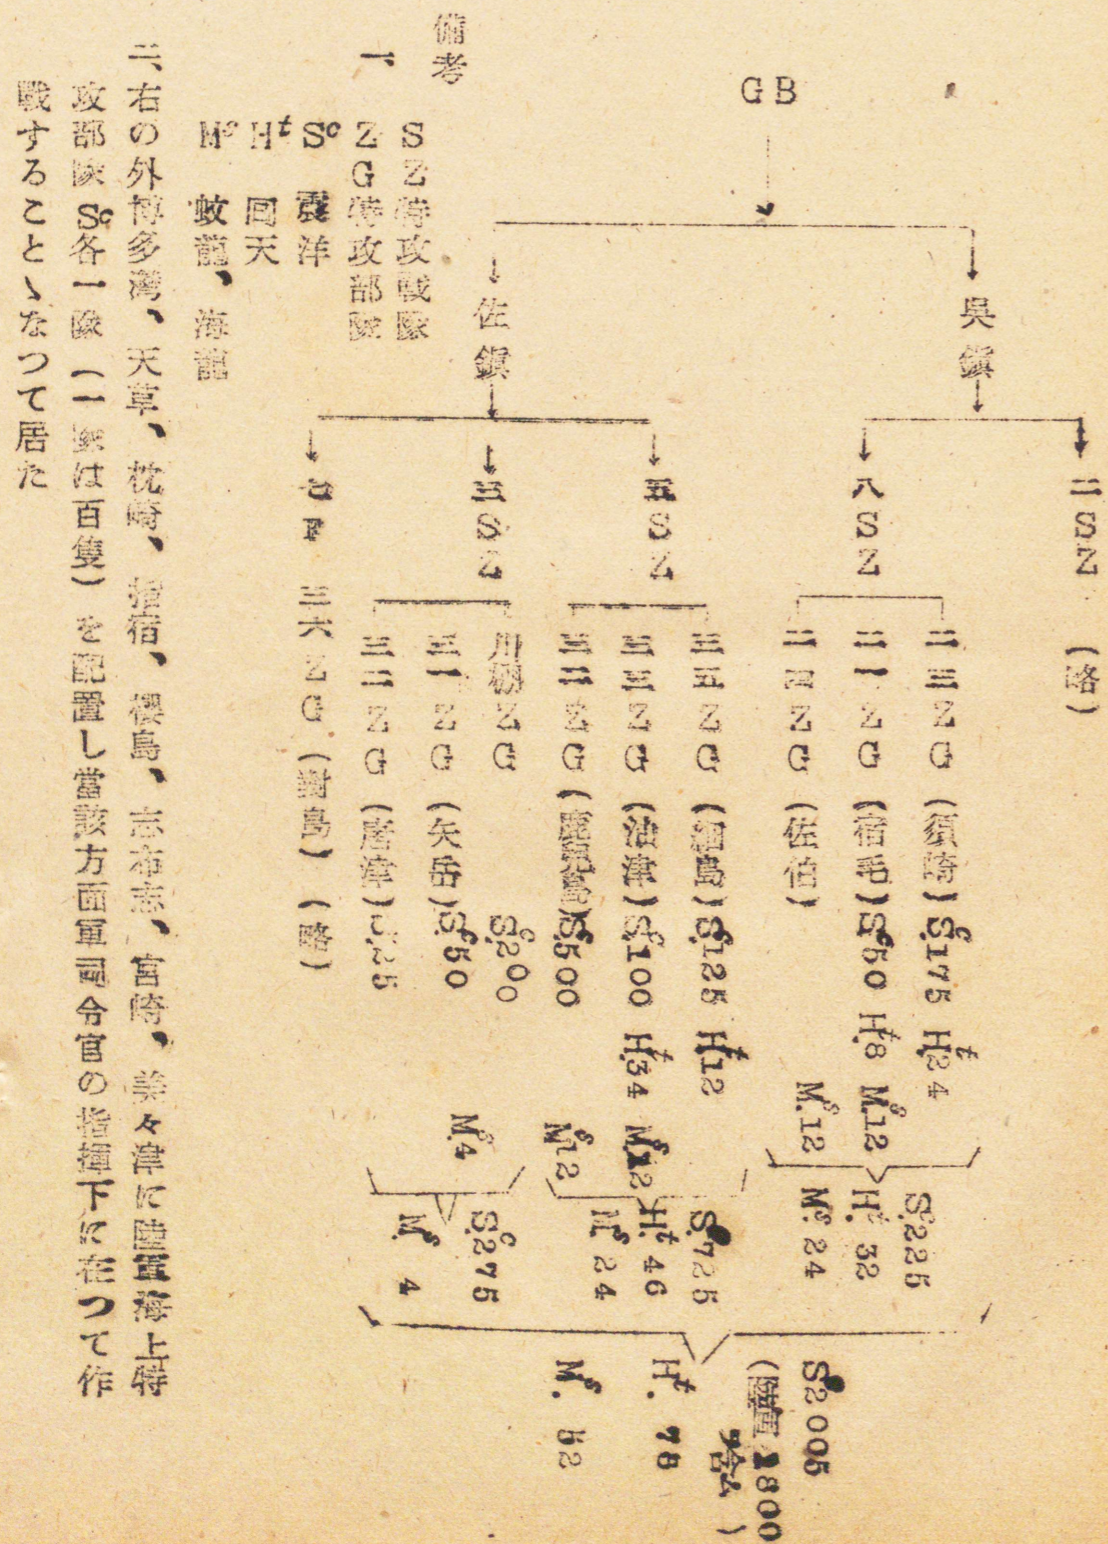 GB
吳鎭
佐鎭
二SZ (略)
八SZ
二三ZG (須崎) Sc.175 Ht.24
二一ZG (宿毛) Sc.50 Ht.8 Ms.12
二四ZG (佐伯) Ms.12
Sc.225
Ht. 32
Ms. 24
五SZ
三五ZG (細島) Sc.125 Ht.12
三三ZG (油津) Sc.100 Ht.34 Ms.12
三二ZG (鹿兒島) Sc.500 Ms.12
Sc.725
Ht. 46
Ms. 24
三SZ
川棚ZG Sc.200
三一ZG (矢岳) Sc.50 Ms.4
三二ZG (唐津) Sc.25
Sc.275
Ms. 4
七F 三六ZG (對島) (略)
Sc2005
(陸軍1800
含ム)
Ht. 78
Ms. 52
備考
一、
SZ特攻戰隊
ZG特攻部隊
Sc 震洋
Ht 回天
Ms 蚊龍、海龍
二、右の外博多灣、天草、枕崎、指宿、櫻島、志布志、宮崎、美々津に陸軍海上特
攻部隊Sc各一隊(一隊は百隻)を配置し當該方面軍司令官の指揮下に在つて作
戰することゝなつて居た